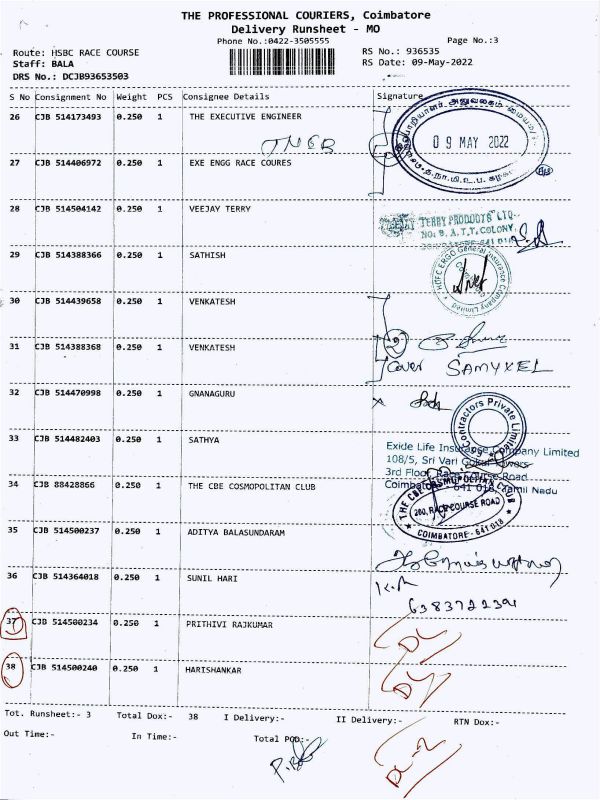 THE PROFESSIONAL COURIERS, Coimbatore
Delivery Runsheet - MO
Phone No.:0422-3505555
Page No.:3
Route: HSBC RACE COURSE
RS No.: 936535
Staff: BALA
RS Date: 09-May-2022
DRS No.: DCJB93653503
S No Consignment No Weight PCS Consignee Details Signature
26 CJB 514173493 0.250 1 THE EXECUTIVE ENGINEER
TNEB
09 MAY 2022
27 CJB 514406972 0.250 1 EXE ENGG RACE COURES
28 CJB 514504142 0.250 1 VEEJAY TERRY
TERRY PRODUCTS LTD.
NO: 8, A.T.T. COLONY,
29 CJB 514388366 0.250 1 SATHISH
HDFC ERGO General Insurance Company Limited
30 CJB 514439658 0.250 1 VENKATESH
31 CJB 514388368 0.250 1 VENKATESH
2
Cover SAMYXEL
32 CJB 514470998 0.250 1 GNANAGURU
Contractors Private Limited
33 CJB 514482403 0.250 1 SATHYA
Exide Life Insurance Company Limited
108/5, Sri Vari Gokul Towers
3rd Floor, Race Course Road
Coimbatore - 641 018, Tamil Nadu
34 CJB 88428866 0.250 1 THE CBE COSMOPOLITAN CLUB
THE CBE COSMOPOLITAN CLUB
280, RACE COURSE ROAD
COIMBATORE - 641 018
35 CJB 514500237 0.250 1 ADITYA BALASUNDARAM
36 CJB 514364018 0.250 1 SUNIL HARI
37 CJB 514500234 0.250 1 PRITHIVI RAJKUMAR
DL
38 CJB 514500240 0.250 1 HARISHANKAR
DL
Tot. Runsheet:- 3 Total Dox:- 38 I Delivery:- II Delivery:- RTN Dox:-
Out Time:- In Time:- Total POD:-
DL-2